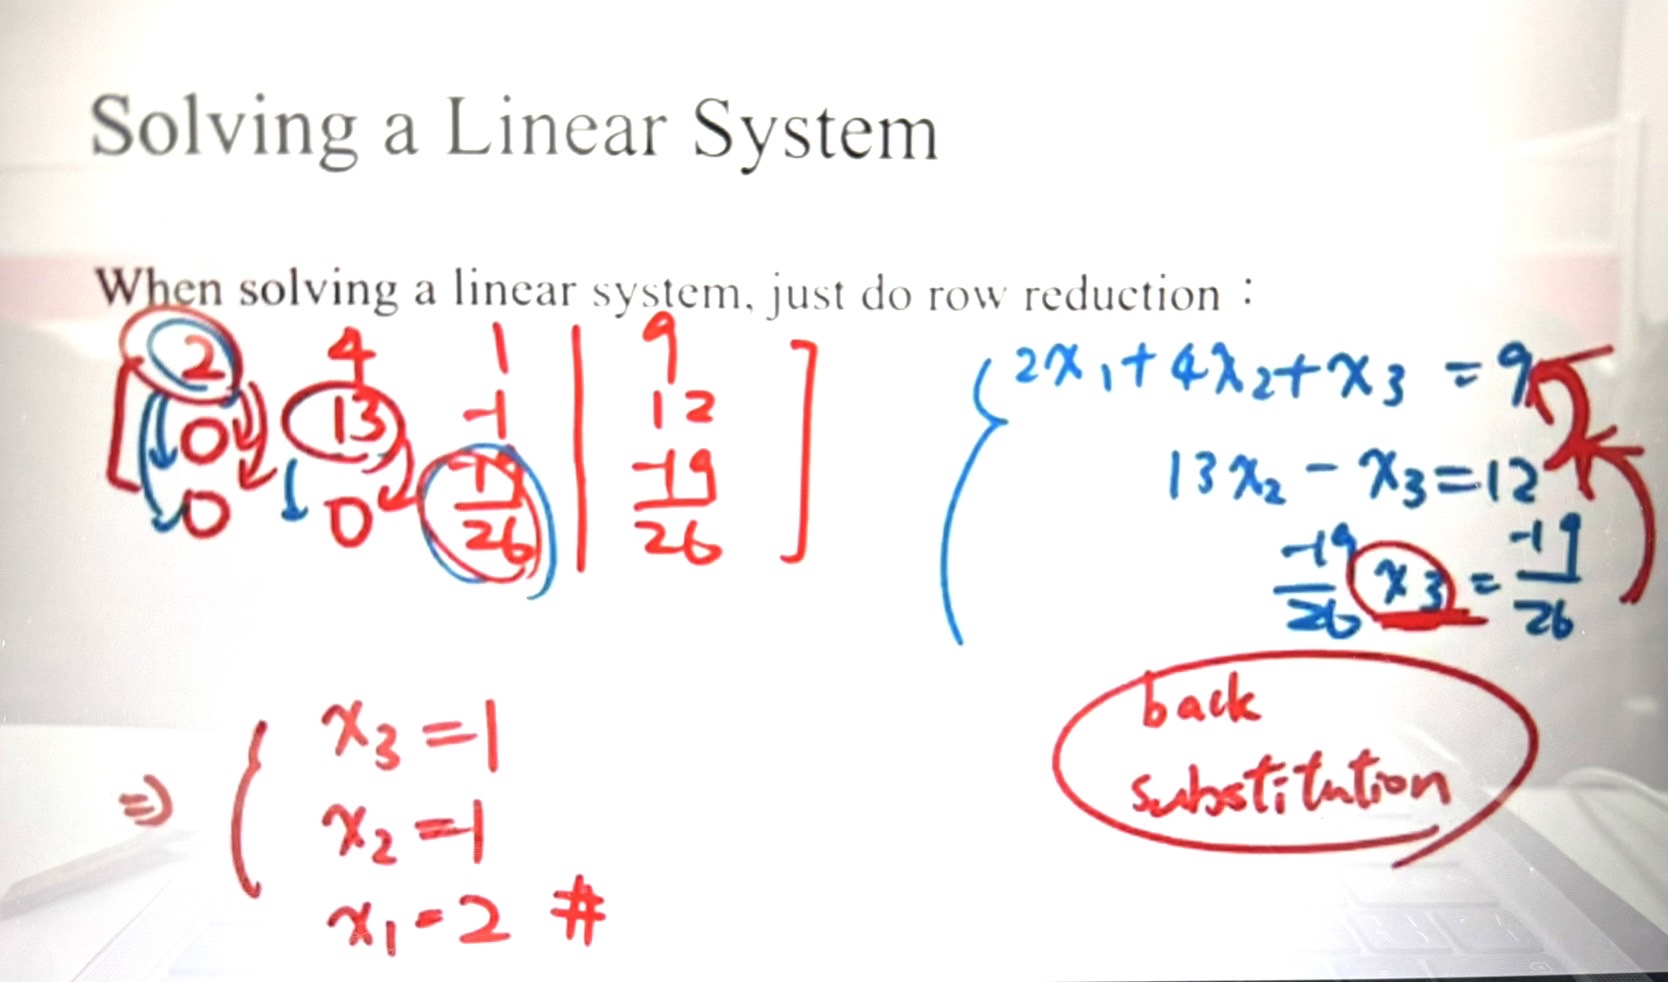 Solving a Linear System
When solving a linear system, just do row reduction：
2 4 1 | 9
0 13 -1 | 12
0 0 -19/26 | -19/26 ]
{ 2x₁+4x₂+x₃ = 9
13x₂ - x₃ = 12
-19/26 x₃ = -19/26
back
substitution
⇒ { x₃ = 1
x₂ = 1
x₁ = 2 #